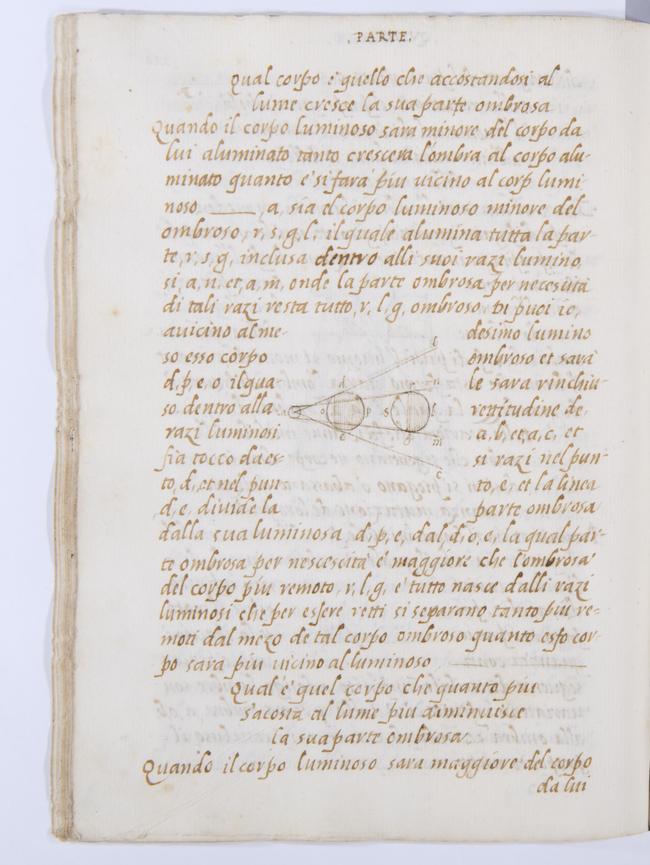 . PARTE.
Qual corpo e' quello che accostandosi al
lume cresce la sua parte ombrosa
Quando il corpo luminoso sara minore del corpo da
lui aluminato tanto crescera l'ombra al corpo alu-
minato quanto e' si fara' piu uicino al corp lumi
noso ___ a, sia il corpo luminoso minore del
ombroso, r, s, g, l, il quale alumina tutta la par-
te, r, s, g, inclusa dentro alli suoi razi lumino
si, a, n, et, a, m, onde la parte ombrosa per necesita
di tali razi resta tutto, r, l, g, ombroso. Di puoi ie,
auicino al me- desimo lumino
so esso corpo ombroso et sara'
d, p, e, o il qua le sara rinchiu-
so dentro alla rettitudine de,
razi luminosi a, b, et, a, c, et
fia tocco da es- si razi nel pun-
to, d, et nel pun to, e, et la linea
d, e, diuide la parte ombrosa
dalla sua luminosa, d, p, e, dal, d, o, e, la qual par-
te ombrosa per nescescita' e' maggiore che l'ombrosa'
del corpo piu remoto, r, l, g, e' tutto nasce dalli razi
luminosi che per essere retti si separano tanto piu re-
moti dal mezo de tal corpo ombroso quanto esso cor-
po sara piu uicino al luminoso
Qual e' quel corpo che quanto piu
s'acosta al lume piu diminuisce
la sua parte ombrosa
Quando il corpo luminoso sara maggiore del corpo
da lui